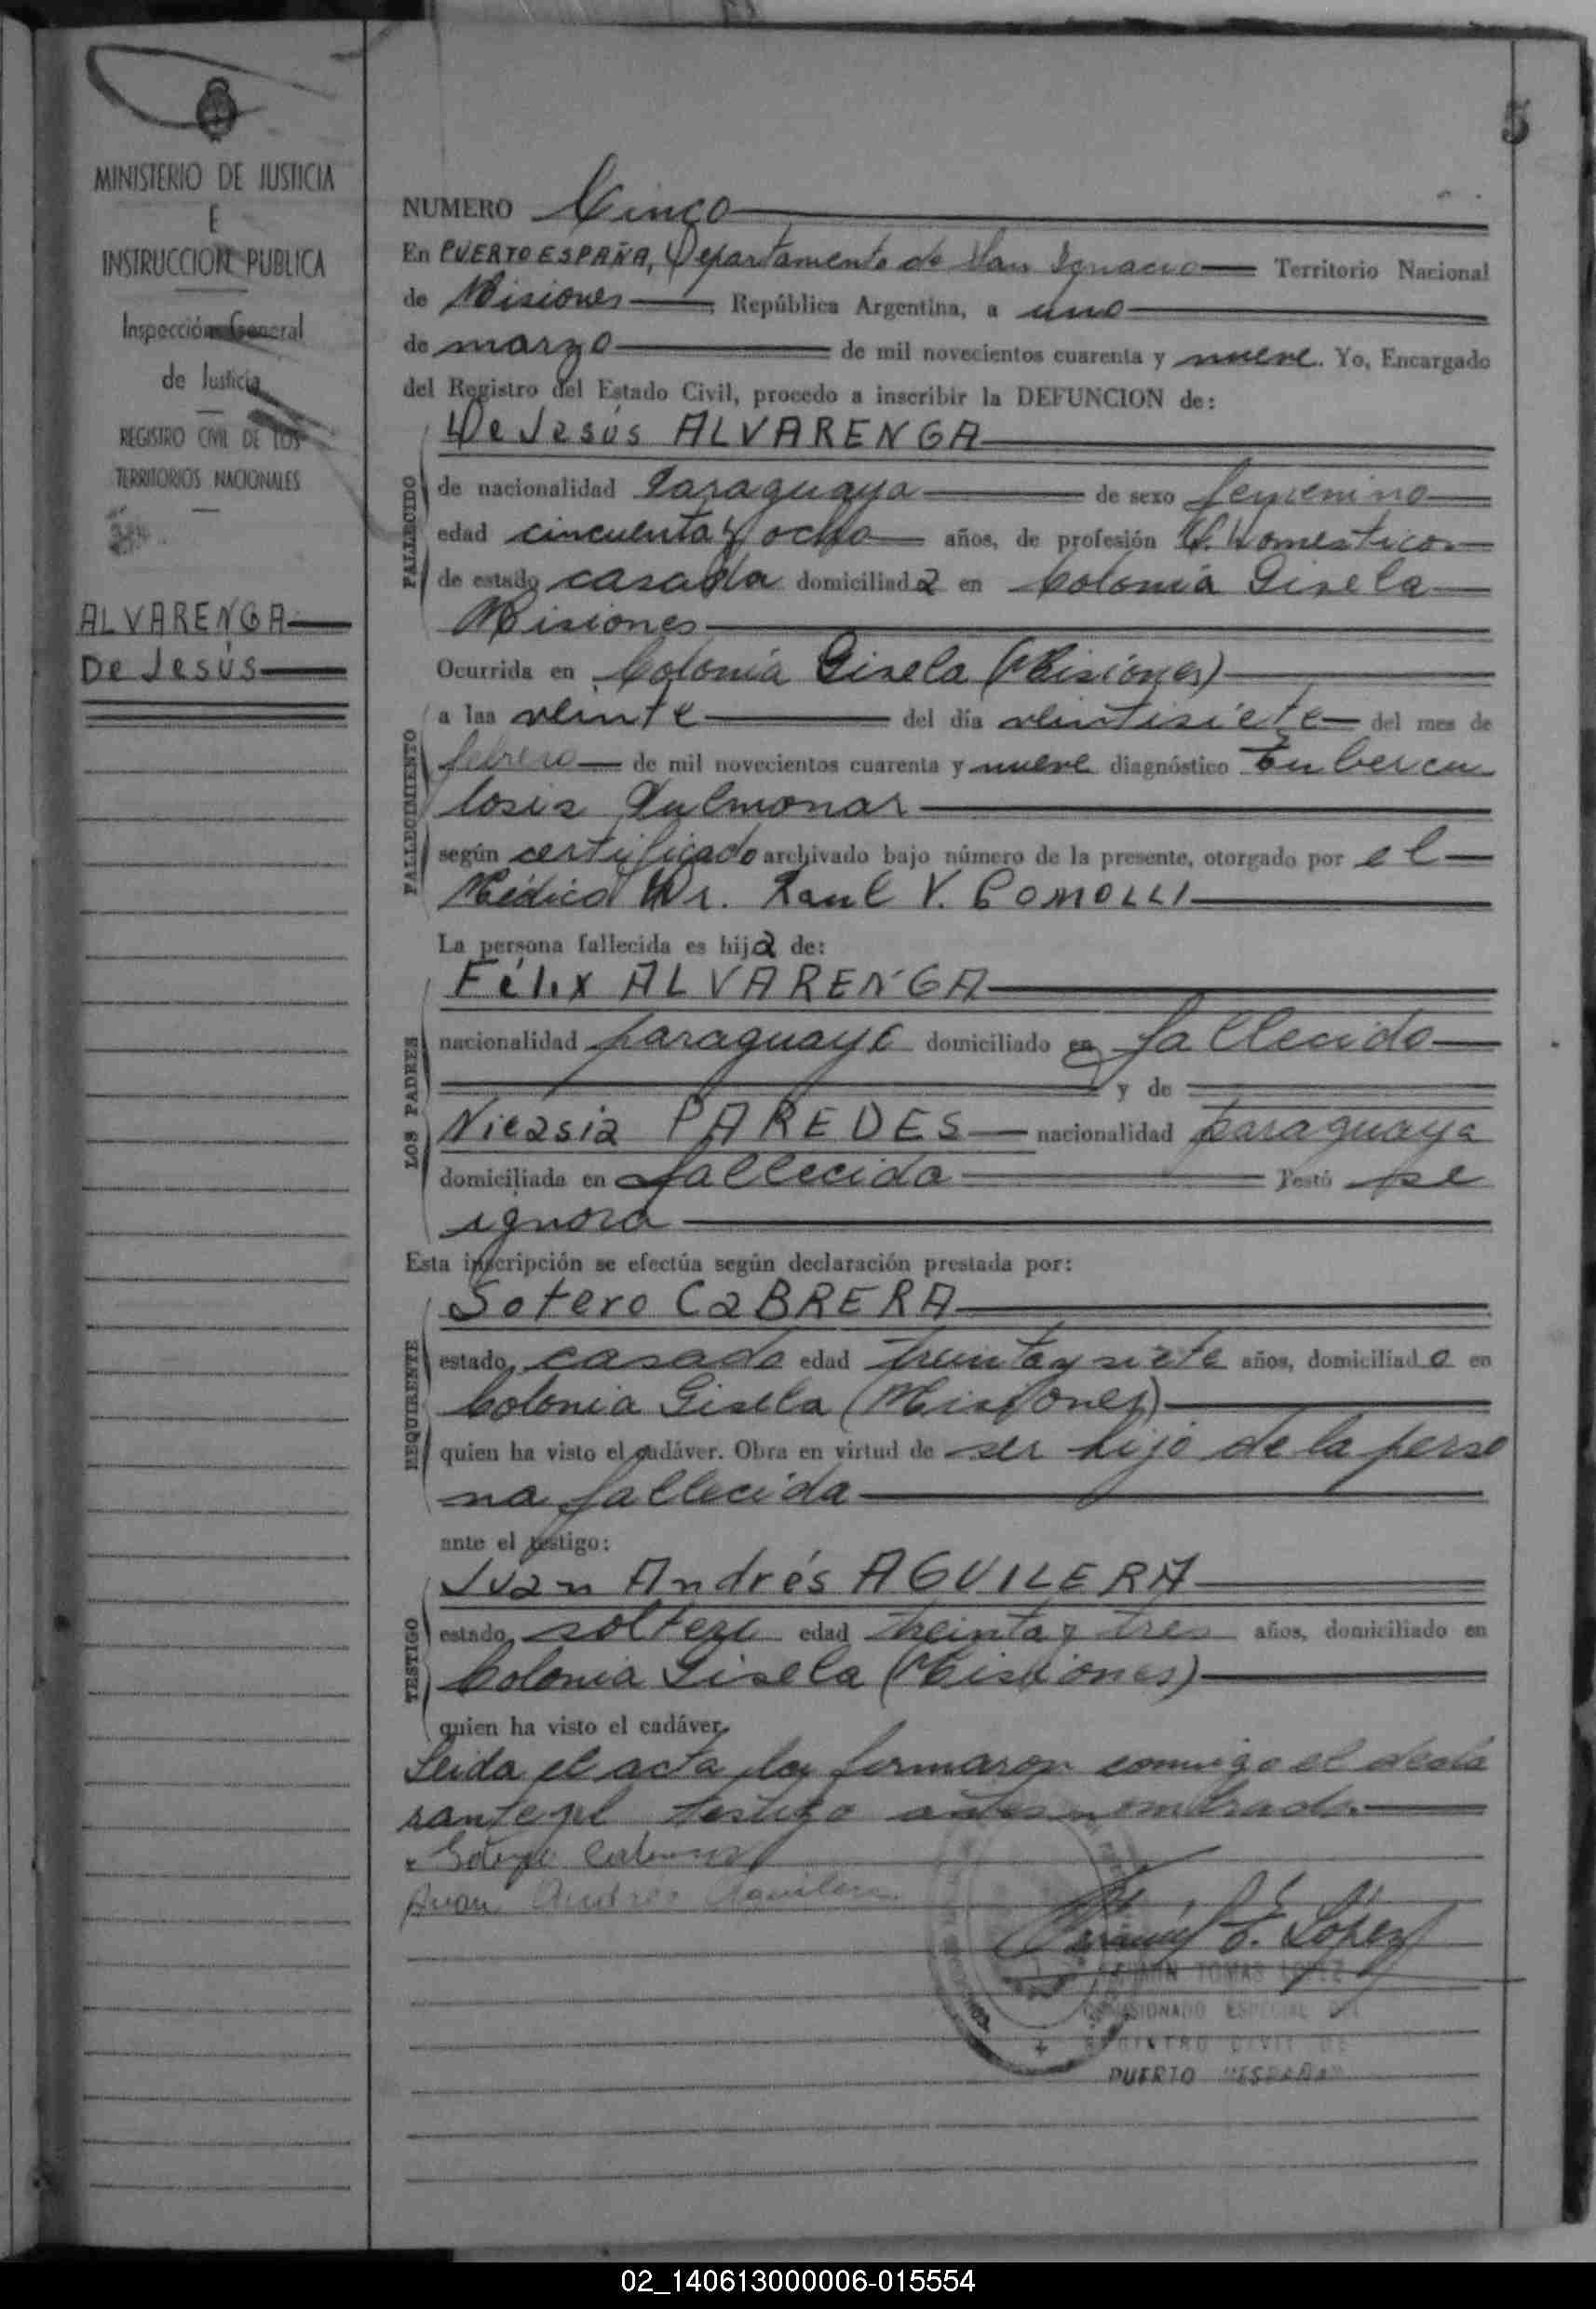 5
MINISTERIO DE JUSTICIA
E
INSTRUCCION PUBLICA
Inspección General
de Justicia
REGISTRO CIVIL DE LOS
TERRITORIOS NACIONALES
ALVARENGA
De Jesús
NUMERO Cinco
En PUERTO ESPAÑA, Departamento de San Ignacio Territorio Nacional
de Misiones, República Argentina, a uno
de marzo de mil novecientos cuarenta y nueve. Yo, Encargado
del Registro del Estado Civil, procedo a inscribir la DEFUNCION de:
De Jesús ALVARENGA
FALLECIDO
de nacionalidad Paraguaya de sexo femenino
edad cincuenta y ocho años, de profesión Q. Domesticos
de estado casada domiciliada en Colonia Gisela
Misiones
Ocurrida en Colonia Gisela (Misiones)
FALLECIMIENTO
a las veinte del día veintisiete del mes de
febrero de mil novecientos cuarenta y nueve diagnóstico Tubercu
losis Pulmonar
según certificado archivado bajo número de la presente, otorgado por el
Médico Dr. Raul V. COMOLLI
La persona fallecida es hija de:
Félix ALVARENGA
LOS PADRES
nacionalidad paraguaya domiciliado en fallecido
y de
Nicasia PAREDES nacionalidad paraguaya
domiciliada en fallecida Testó se
ignora
Esta inscripción se efectúa según declaración prestada por:
Sotero CaBRERA
REQUIRENTE
estado casado edad treinta y siete años, domiciliado en
Colonia Gisela (Misiones)
quien ha visto el cadáver. Obra en virtud de ser hijo de la perso
na fallecida
ante el testigo:
Juan Andrés AGUILERA
TESTIGO
estado soltero edad treinta y tres años, domiciliado en
Colonia Gisela (Misiones)
quien ha visto el cadáver.
Leida el acta la firmaron conmigo el decla
rante y el testigo antes nombrado.
Sotero Cabrera
Juan Andrés Aguilera
Fermín T. López
FERMIN TOMAS LOPEZ
COMISIONADO ESPECIAL DEL
REGISTRO CIVIL DE
PUERTO "ESPAÑA"
02_140613000006-015554